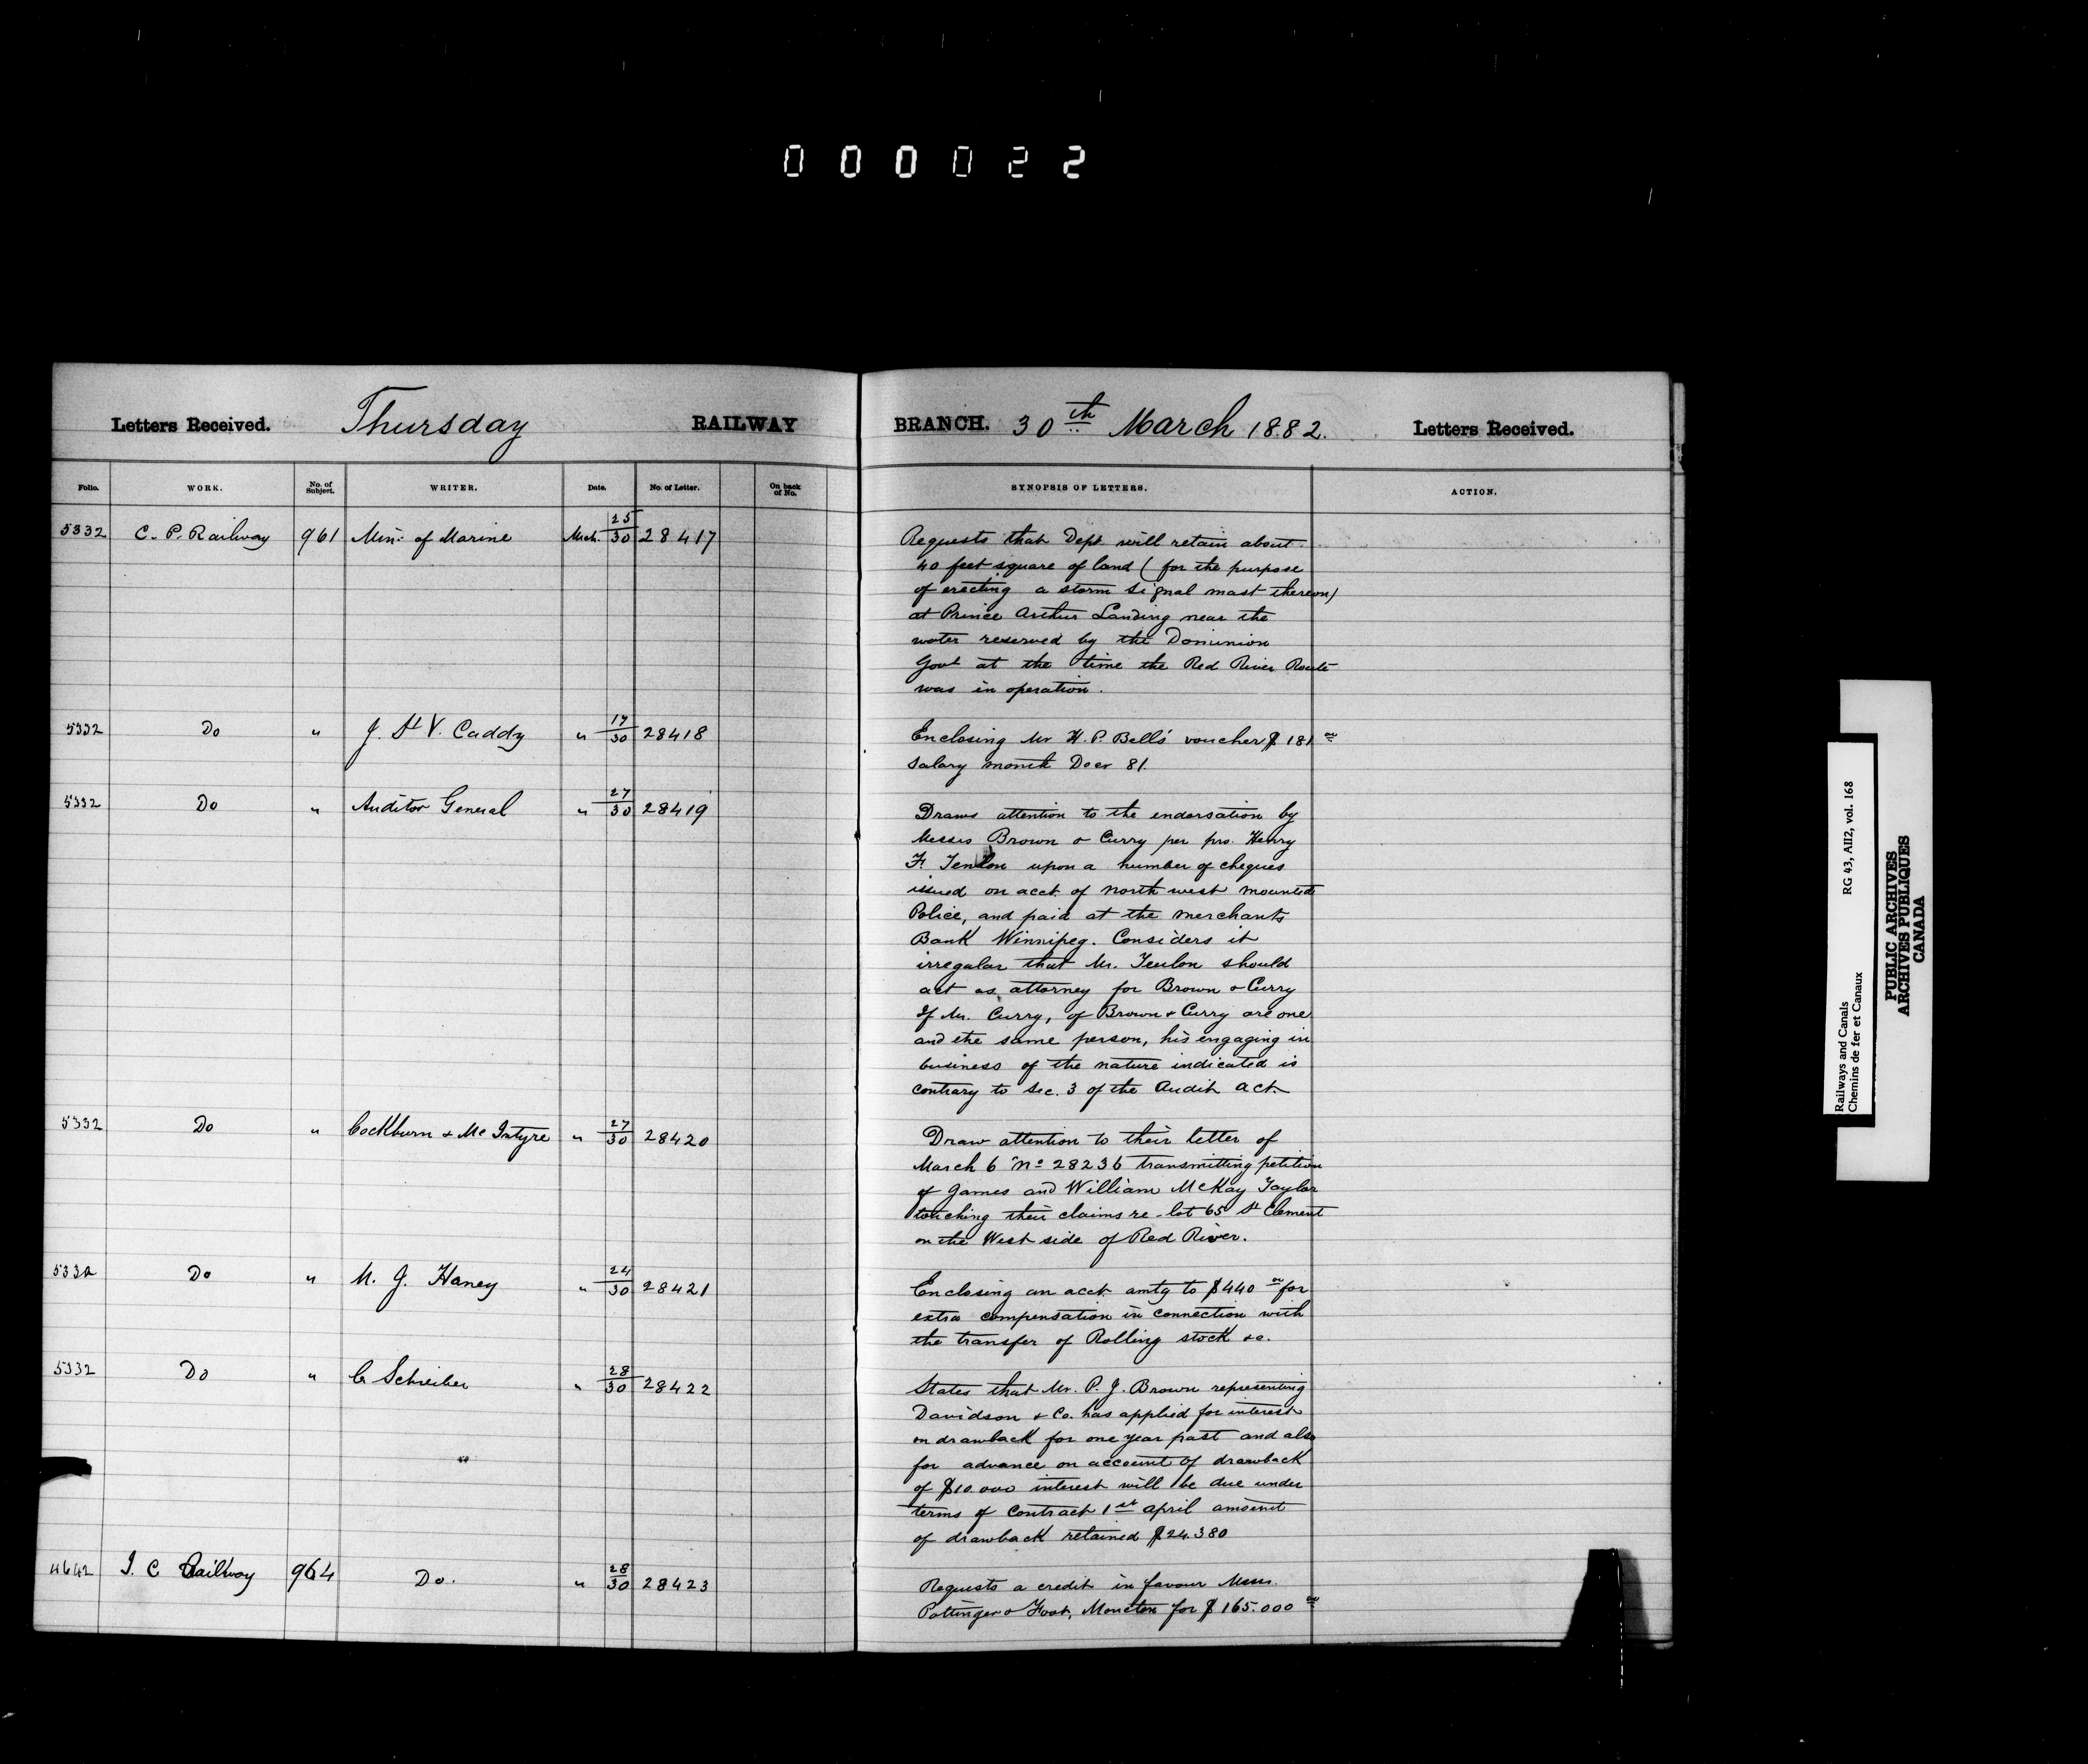 000022
Letters Received. Thursday RAILWAY BRANCH. 30th March 1882. Letters Received.
Folio. WORK. No. of Subject. WRITER. Date. No. of Letter. On back of No. SYNOPSIS OF LETTERS. ACTION.
5332 C. P. Railway 961 Min. of Marine Mch. 25/30 28417
Requests that Dept will retain about
40 feet square of land (for the purpose
of erecting a storm signal mast thereon)
at Prince Arthur Landing near the
water reserved by the Dominion
Govt at the time the Red River Route
was in operation.
5332 Do " J. St V. Caddy " 17/30 28418
Enclosing Mr H. P. Bell's voucher $181 00
Salary month Decr 81.
5332 Do " Auditor General " 27/30 28419
Draws attention to the endorsation by
Messrs Brown & Curry per pro. Henry
F. Teulon upon a number of cheques
issued on acct. of North west mounted
Police, and paid at the Merchants
Bank Winnipeg. Considers it
irregular that Mr. Teulon should
act as attorney for Brown & Curry
If Mr. Curry, of Brown & Curry are one
and the same person, his engaging in
business of the nature indicated is
contrary to Sec. 3 of the Audit Act.
5332 Do " Cockburn & McIntyre " 27/30 28420
Draw attention to their letter of
March 6 No 28236 transmitting petition
of James and William McKay Taylor
touching their claims re-lot 65 St Clement
on the West side of Red River.
5332 Do " M. J. Haney " 24/30 28421
Enclosing an acct. amtg to $440 00 for
extra compensation in connection with
the transfer of Rolling stock &c.
5332 Do " C Schreiber " 28/30 28422
States that Mr. P. J. Brown representing
Davidson & Co. has applied for interest
on drawback for one year past and also
for advance on account of drawback
of $10.000 interest will be due under
terms of Contract 1st April amount
of drawback retained $24.380
4642 I. C Railway 964 Do. " 28/30 28423
Requests a credit in favour Messrs.
Pottinger & Foot, Moncton for $165.000 00
Railways and Canals RG 43, AII2, vol. 168
Chemins de fer et Canaux
PUBLIC ARCHIVES
ARCHIVES PUBLIQUES
CANADA